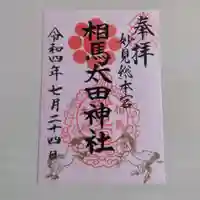 奉拝
妙見総本宮
相馬太田神社
令和四年七月二十四日